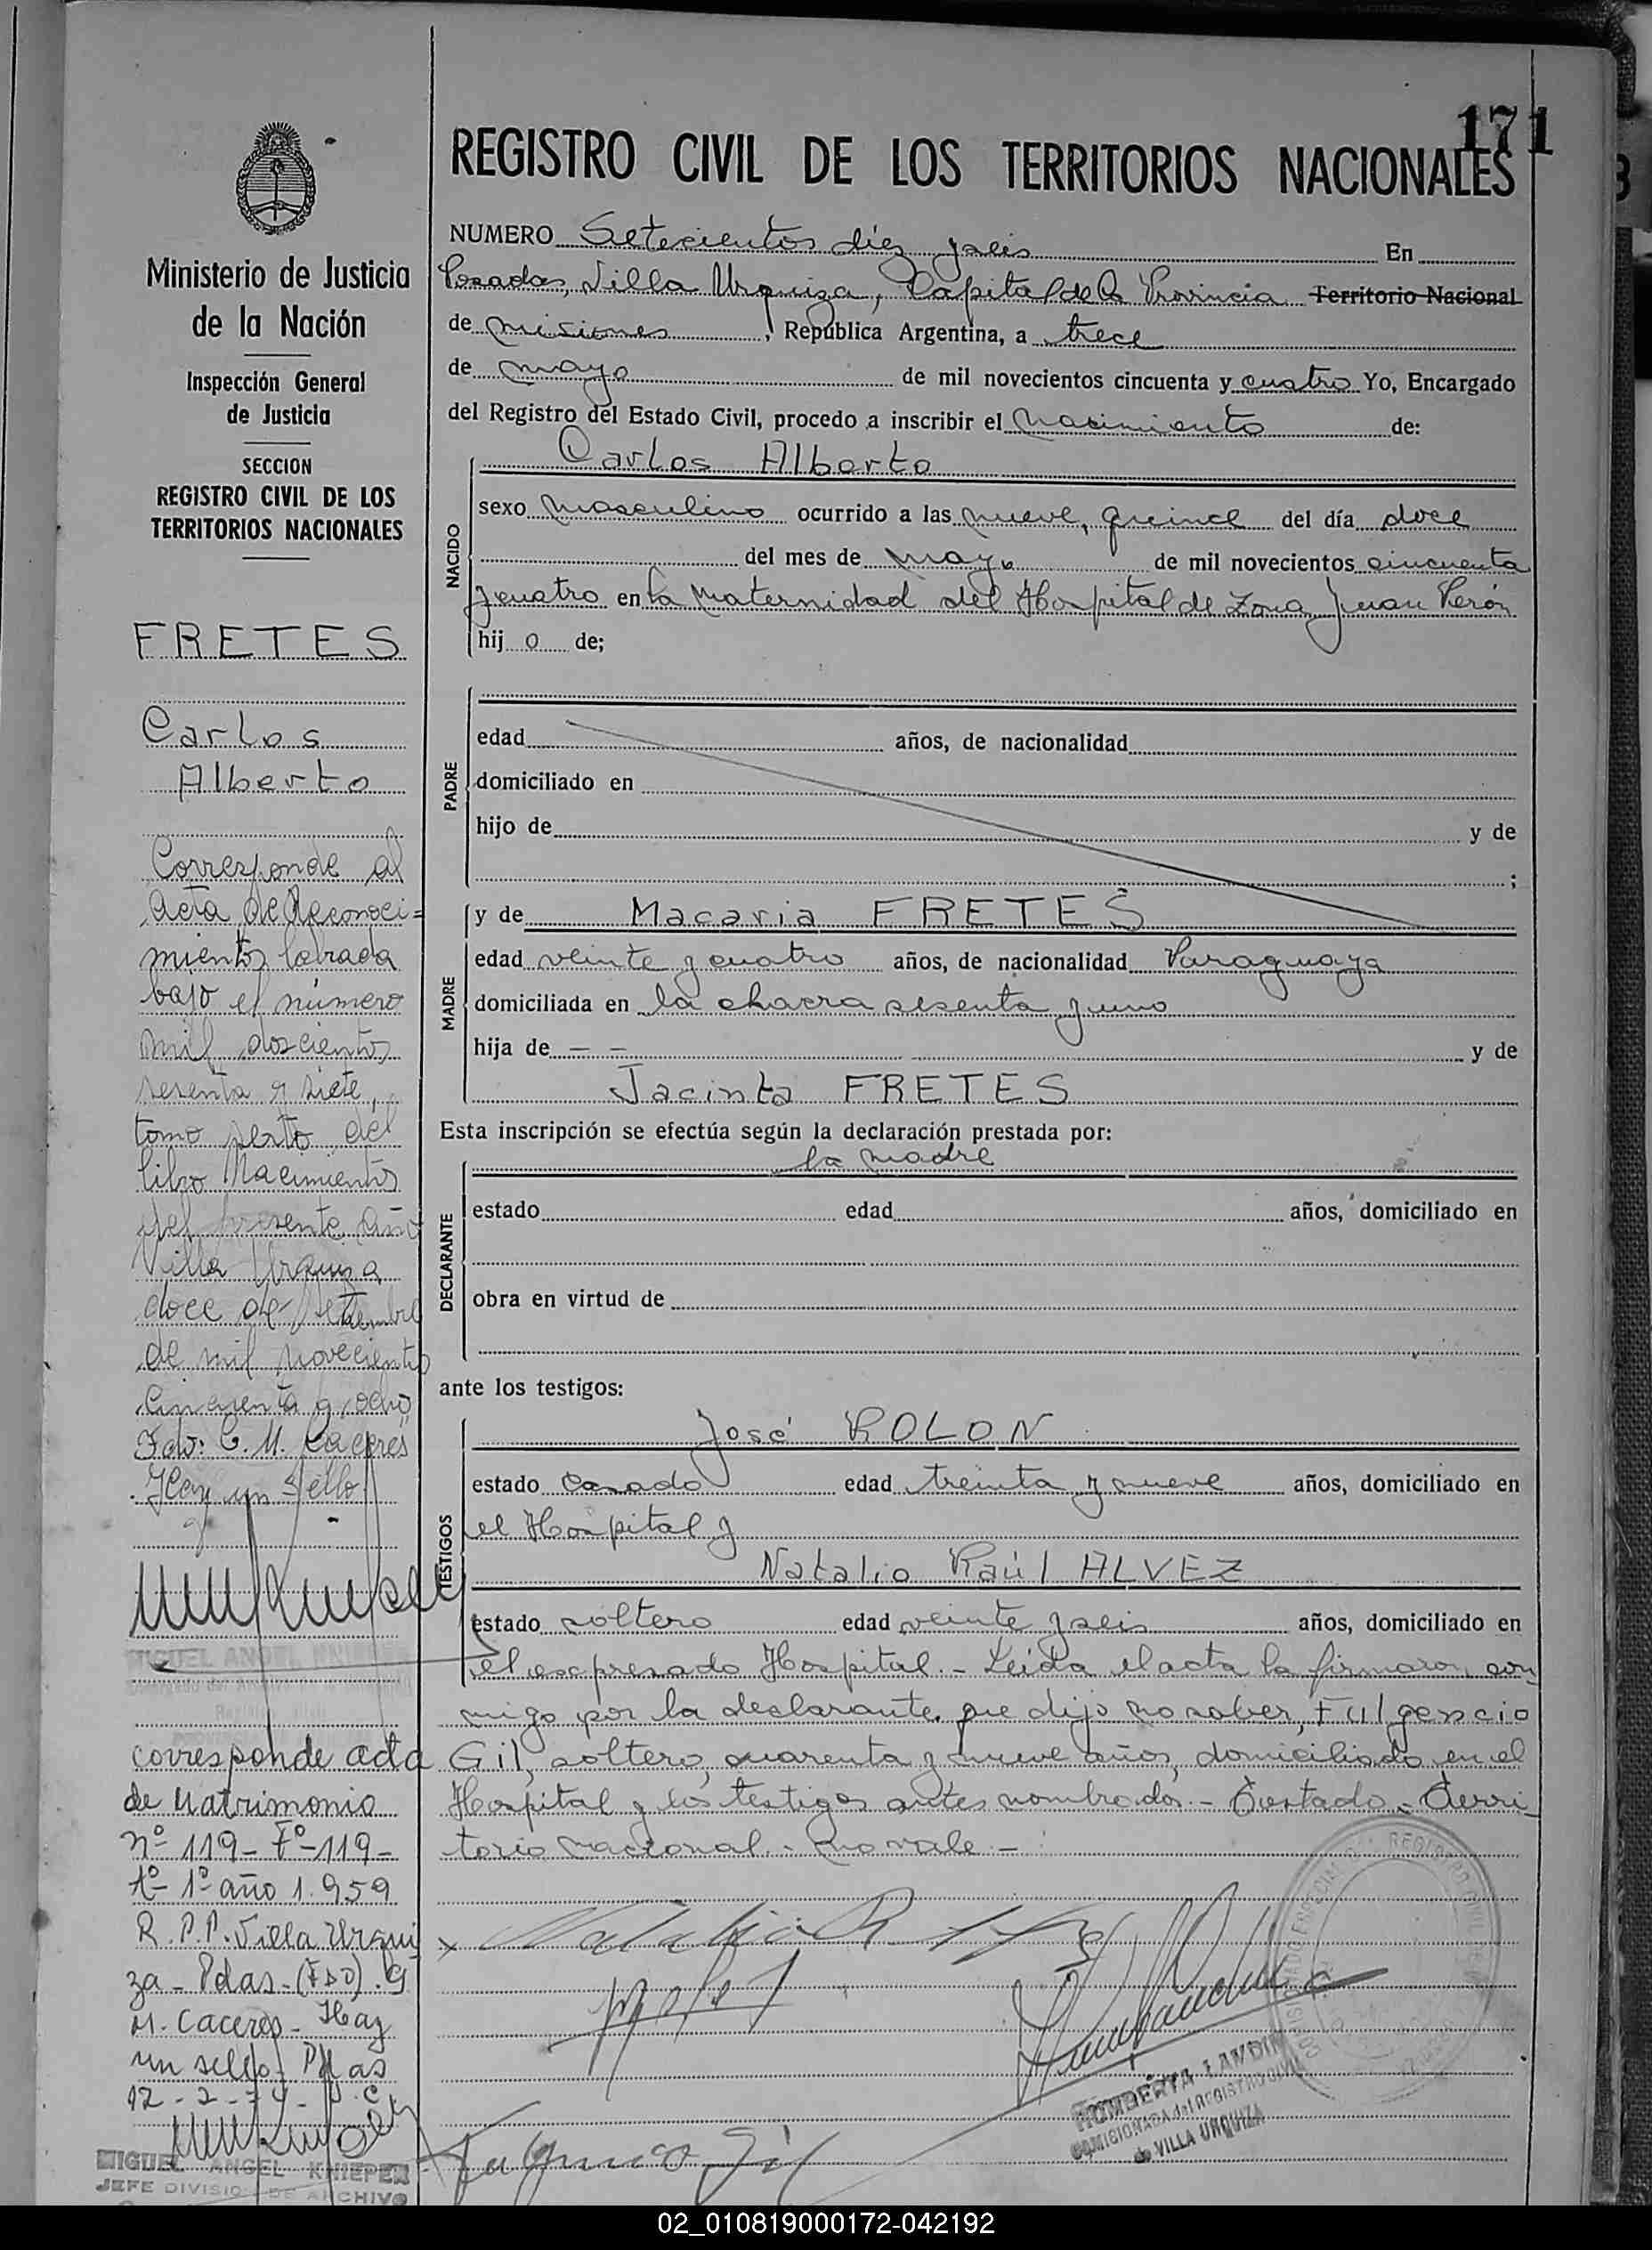 171
REGISTRO CIVIL DE LOS TERRITORIOS NACIONALES
Ministerio de Justicia
de la Nación
Inspección General
de Justicia
SECCION
REGISTRO CIVIL DE LOS
TERRITORIOS NACIONALES
FRETES
Carlos
Alberto
Corresponde al
acta de Reconoci=
miento labrada
bajo el número
mil doscientos
sesenta y siete,
tomo sexto del
libro Nacimientos
del presente año
Villa Urquiza
doce de setiembre
de mil novecientos
cincuenta y ocho
Fdo: C. M. Caceres
Hay un sello
MIGUEL ANGEL
corresponde acta
de Matrimonio
nº 119- Fº-119-
tº- 1º año 1.959
R.P.P. Villa Urqui
za - Pdas - (FDO). G
M. Caceres - Hay
un sello Pdas
12-2-74
MIGUEL ANGEL KNIEPER
JEFE DIVISION DE ARCHIVO
NUMERO Setecientos diez y seis En
Posadas, Villa Urquiza, Capital de la Provincia Territorio Nacional
de misiones, República Argentina, a trece
de mayo de mil novecientos cincuenta y cuatro Yo, Encargado
del Registro del Estado Civil, procedo a inscribir el nacimiento de:
NACIDO
Carlos Alberto
sexo masculino ocurrido a las nueve, quince del día doce
del mes de mayo de mil novecientos cincuenta
y cuatro en la Maternidad del Hospital de Zona Juan Perón
hij o de;
PADRE
edad años, de nacionalidad
domiciliado en
hijo de y de
;
MADRE
y de Macaria FRETES
edad veinte y cuatro años, de nacionalidad Paraguaya
domiciliada en la chacra sesenta y uno
hija de — — y de
Jacinta FRETES
Esta inscripción se efectúa según la declaración prestada por:
DECLARANTE
la madre
estado edad años, domiciliado en
obra en virtud de
ante los testigos:
TESTIGOS
José ROLON
estado casado edad treinta y nueve años, domiciliado en
el Hospital y
Natalio Raúl ALVEZ
estado soltero edad veinte y seis años, domiciliado en
el expresado Hospital.- Leída el acta la firmaron con
migo por la declarante que dijo no saber, Fulgencio
Gil, soltero, cuarenta y nueve años, domiciliado en el
Hospital y los testigos antes nombrados.- Testado - Terri
torio nacional.- no vale.-
HUMBERTA LANDIN
COMISIONADA del REGISTRO CIVIL
de VILLA URQUIZA
02_010819000172-042192